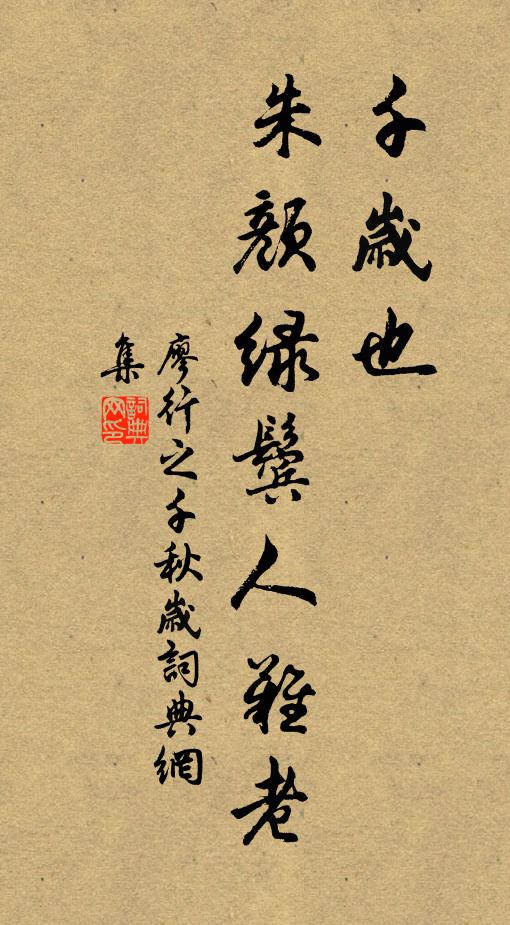 千歲也
朱顏綠鬢人難老
廖行之千秋歲詞典網
集
詞典
网印